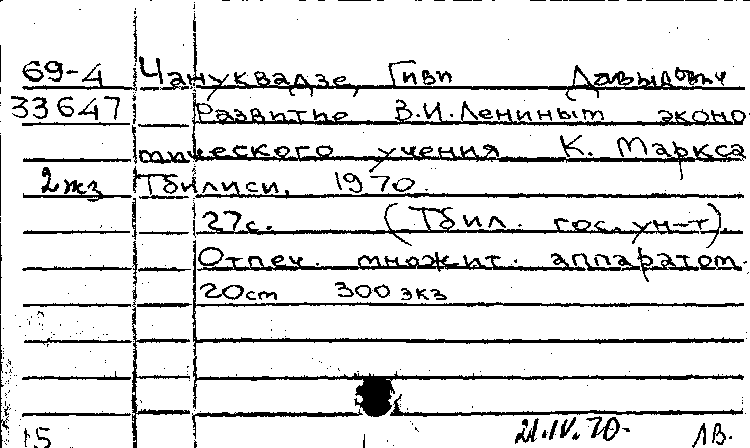 69-4 Чануквадзе, Гиви Давыдович
33647 Развитие В.И.Лениным эконо-
мического учения К. Маркса
2жз Тбилиси, 1970.
27с. (Тбил. гос. ун-т).
Отпеч. множит. аппаратом.
20см 300 экз
15 21.IV.70. ЛВ.